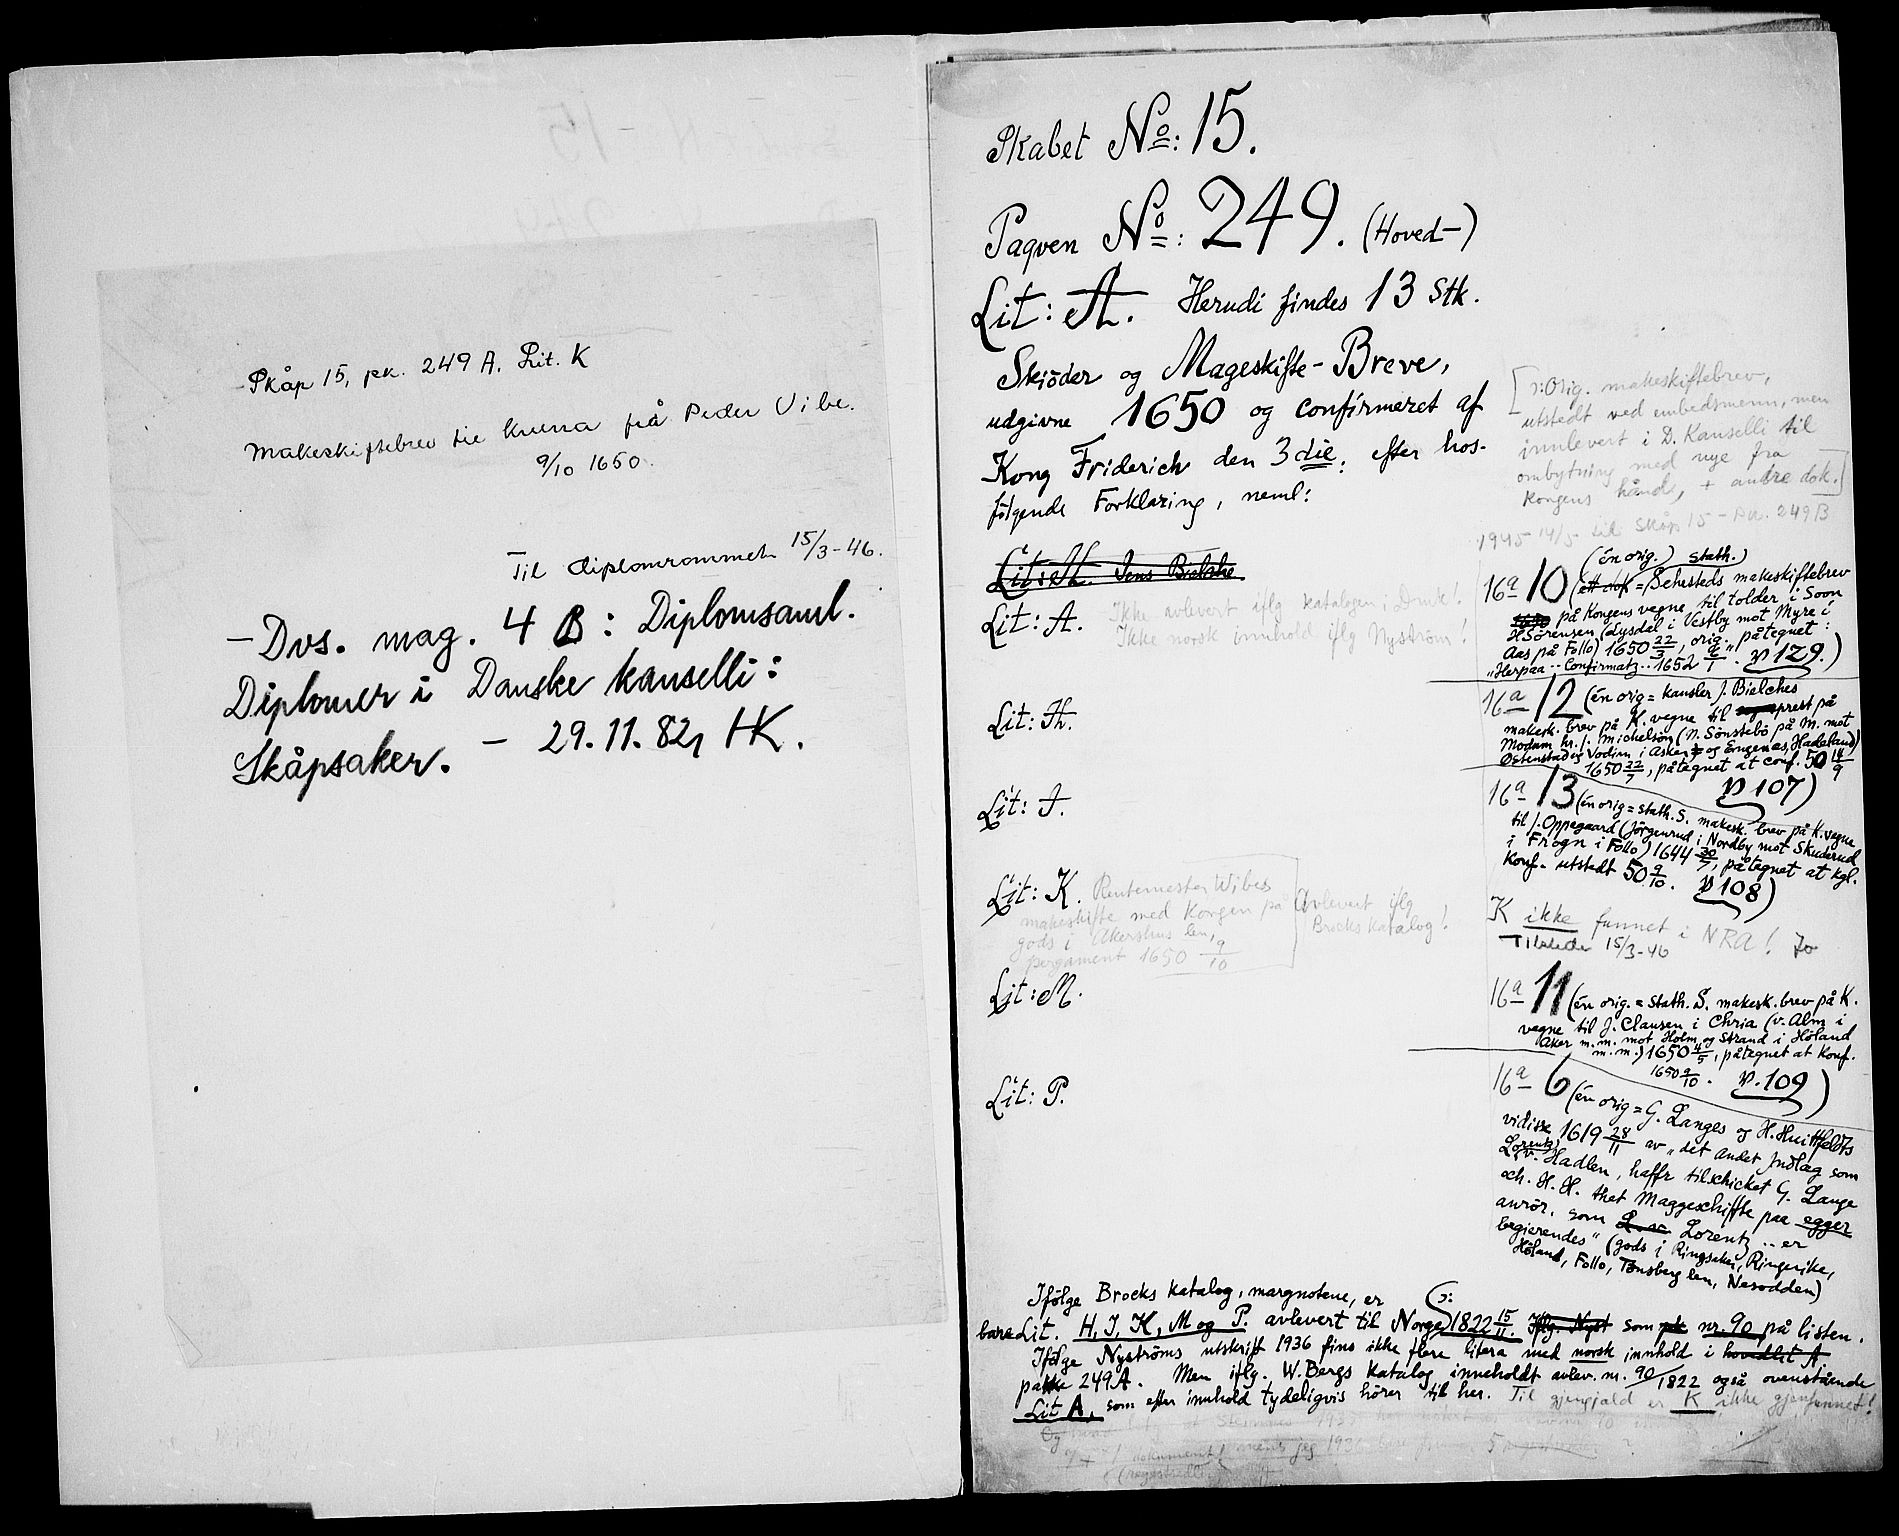 Skåp 15, pk. 249 A. Lit. K
Makeskiftebrev til kruna frå Peder Vibe.
9/10 1650.
Til diplomrommet 15/3-46.
- Dvs. mag. 4 B: Diplomsaml.
Diplomer i Danske kanselli:
Skåpsaker. - 29.11.82, HK.
Skabet No: 15.
Paqven No: 249. (Hoved-)
Lit: A. Herudi findes 13 Stk.
Skiöder og Mageskifte-Breve,
udgivne 1650 og confirmeret af
Kong Friderich den 3die: efter hos-
følgende Forklaring, neml:
[ɔ: Orig. makeskiftebrev,
utstedt ved embedsmenn, men
innlevert i D. Kanselli til
ombytning med nye fra
Kongens hånd, + andre dok.]
1945 14/5 til Skåp 15 - Pk. 249B
Lit: A. Jens Bielche
Lit: A. Ikke avlevert iflg katalogen i Dmk!
Ikke norsk innhold iflg Nyström!
Lit: H.
Lit: I.
Lit: K. Rentemester Wibes
makeskifte med Kongen på
gods i Akershus len,
pergament 1650 9/10
Avlevert iflg
Brocks katalog!
Lit: M.
Lit: P.
16a 10 (én orig.) stath.)
(ett dok = Sehesteds makeskiftebrev
på Kongens vegne til tolder i Soon
H Sörensen (Lysdal i Vestby mot Myre i
Aas på Follo) 1650 22/3, orig. påtegnet:
"Herpaa .. Confirmatz .. 1652 6/1". p 129.)
16a 12 (én orig = kansler J. Bielches
makesk. brev på K. vegne til prest på
Modum hr. J. Michelsön (N. Sönstebö på M. mot
Östenstad og Vodim i Asker og Engenæs, Hadeland)
1650 22/7, påtegnet at conf. 50 14/9
p 107)
16a 13 (én orig = stath. S. makesk. brev på K. vegne
til J. Oppegaard (Jörgenrud i Nordby mot Skuderud
i Frogn i Follo) 1644 30/7, påtegnet at kgl.
konf. utstedt 50 9/10. p 108)
K ikke funnet i NRA! Jo
Tilstede 15/3-46
16a 11 (én orig. = stath. S. makesk. brev på K.
vegne til J. Clausen i Chria (v. Alm i
Aker m.m. mot Holm og Strand i Höland
m.m.) 1650 4/5, påtegnet at konf.
1650 9/10. p. 109)
16a 6 (én orig = G. Langes og H. Huitfeldts
vidisse 1619 28/11 av "det andet Indlæg som
Lorentz v. Hadlen, haffr tilschicket G. Lange
och. H. H. thet Maggeschiffte paa egger
anrör, som Lorentz .. er
begierendes" (gods i Ringsaker, Ringerike,
Höland, Follo, Tønsberg len, Nesodden)
Ifölge Brocks katalog, margnotene, er
bare Lit. H, I, K, M og P. avlevert til Norge ɔ: 1822 15/11. Iflg. Nyst som pk nr. 90 på listen.
Ifölge Nyströms utskrift 1936 fins ikke flere litera med norsk innhold i hovedlit A
pakke 249A. Men iflg. W. Bergs katalog inneholdt avlev. nr. 90/1822 også ovenstående
Lit A, som efter innhold tydeligvis hörer til her. Til gjengjald er K ikke gjenfunnet!